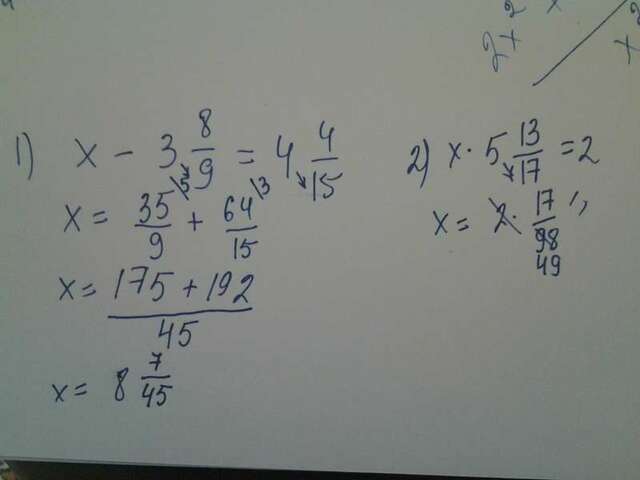 2x² x
x²
1) x - 3 8/9 = 4 4/15
x = 35/9 \5 + 64/15 \3
x = 175 + 192/45
x = 8 7/45
2) x · 5 13/17 = 2
x = 2 · 17/98
49